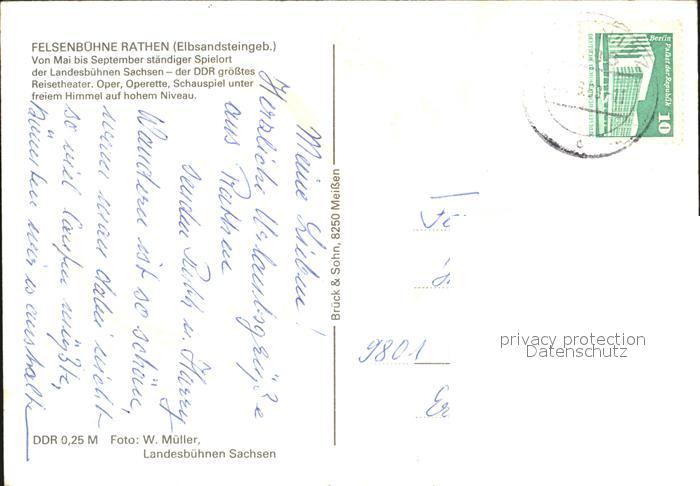 FELSENBÜHNE RATHEN (Elbsandsteingeb.)
Von Mai bis September ständiger Spielort
der Landesbühnen Sachsen – der DDR größtes
Reisetheater. Oper, Operette, Schauspiel unter
freiem Himmel auf hohem Niveau.
Meine Lieben!
Herzliche Urlaubsgrüße
aus Rathen
senden Ruth u. Harry
Wandern ist so schön,
wenn man dabei nicht
so viel laufen müßte,
könnten wir's aushalten
DDR 0,25 M Foto: W. Müller,
Landesbühnen Sachsen
Brück & Sohn, 8250 Meißen
Berlin
Palast der Republik
10
9801
privacy protection
Datenschutz